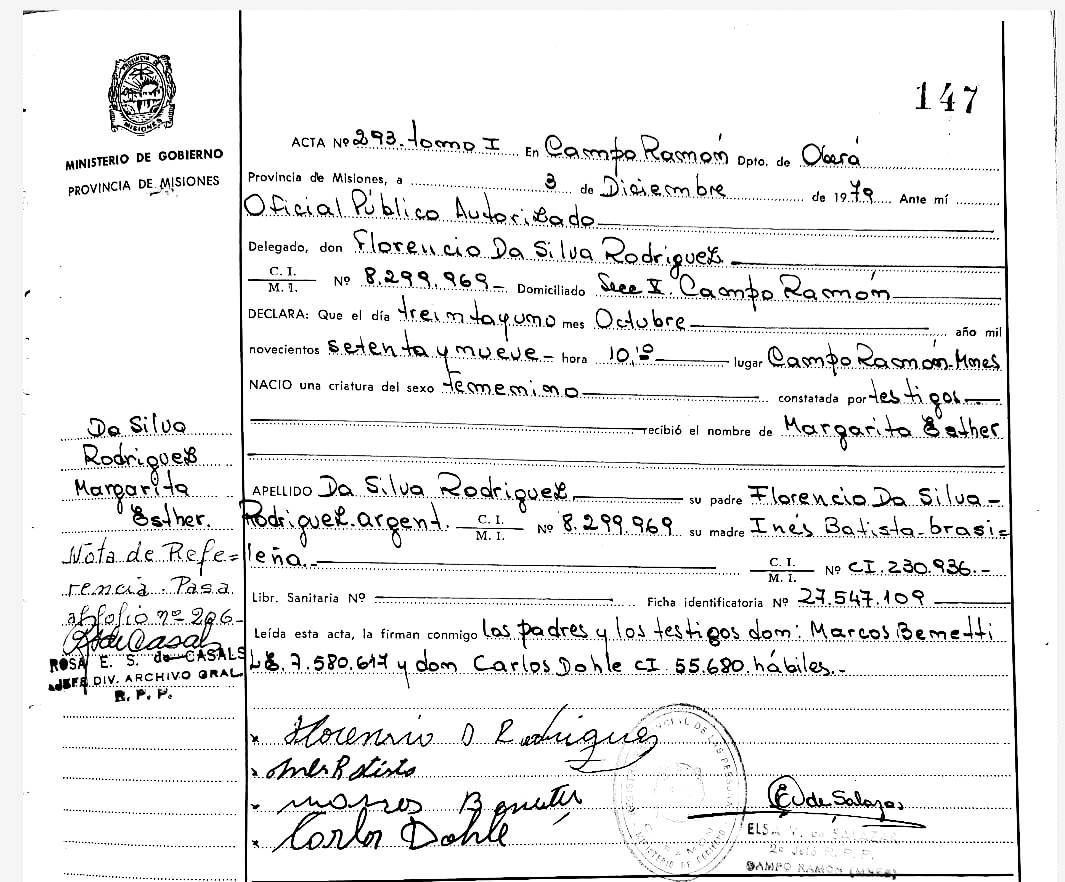 147
PROVINCIA DE
MISIONES
MINISTERIO DE GOBIERNO
PROVINCIA DE MISIONES
ACTA Nº 293. tomo I En Campo Ramón Dpto. de Oberá
Provincia de Misiones, a 3 de Diciembre de 1979 Ante mí
Oficial Público Autorizado
Delegado, don Florencio Da Silva Rodriguez
C. I.
M. I. Nº 8.299.969- Domiciliado Secc V. Campo Ramón
DECLARA: Que el día treintayuno mes Octubre año mil
novecientos setenta y nueve- hora 10,10 lugar Campo Ramón-Mnes
NACIO una criatura del sexo femenino constatada por testigos.
recibió el nombre de Margarita Esther
APELLIDO Da Silva Rodriguez su padre Florencio Da Silva-
Rodriguez. argent. C. I.
M. I. Nº 8.299.969 su madre Inés Batista-brasi=
leña. C. I.
M. I. Nº CI.230.936.-
Libr. Sanitaria Nº Ficha identificatoria Nº 27.547.109
Leída esta acta, la firman conmigo los padres y los testigos don: Marcos Benetti
LE. 7.580.617 y don Carlos Dohle CI 55.680. hábiles.-
Da Silva
Rodriguez
Margarita
Esther.
Nota de Refe=
rencia. Pasa
al folio nº 206-
ROSA E. S. de CASALS
JEFE DIV. ARCHIVO GRAL.
R. P. P.
Florencio D Rodrigues
Ines Batista
Carlos Dohle
E V de Salazar
ELSA V. de SALAZAR
R. P. P.
CAMPO RAMON (MNES)